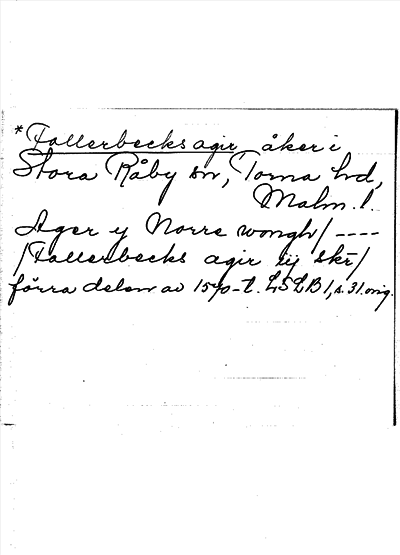 *Fallerbecks agir, åker i
Stora Råby sn, Torna hd,
Malm. l.
Ager y Norre wongh/ ----
/Fallerbecks agir iij skr/
förra delen av 1570-t. LSLB 1, s. 31. orig.